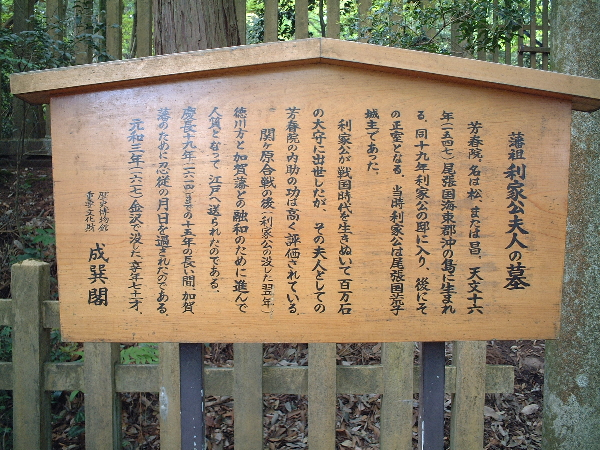 藩祖 利家公夫人の墓
芳春院、名は松、または昌。天文十六
年(一五四七)尾張国海東郡沖の島に生まれ
る。同十九年利家公の邸に入り、後にそ
の正室となる。当時利家公は尾張国荒子
城主であった。
利家公が戦国時代を生きぬいて百万石
の大守に出世したが、その夫人としての
芳春院の内助の功は高く評価されている。
関ヶ原合戦の後(利家公の没した翌年)
徳川方と加賀藩との融和のために進んで
人質となって江戸へ送られたのである。
慶長十九年(一六一四)までの十五年の長い間、加賀
藩のために忍従の月日を過されたのである。
元和三年(一六一七)金沢で没した。享年七十才。
歴史博物館
重要文化財
成巽閣